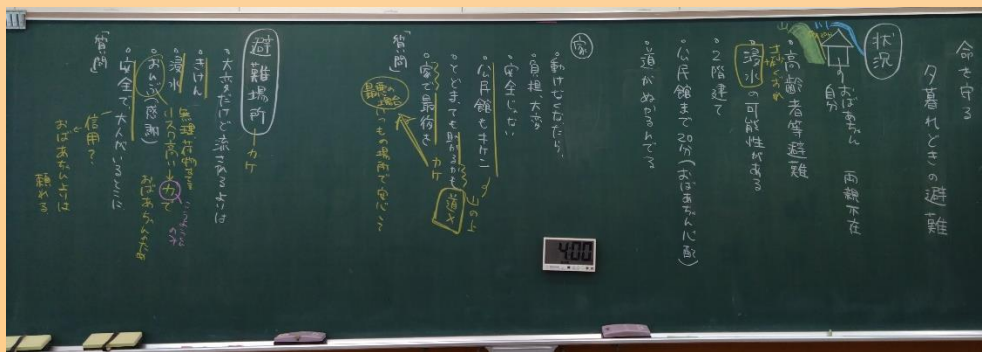 命を守る
夕暮れどきの避難
状況
山
川
自分
おばあちゃん 両親不在
・高齢者等避難
・浸水の可能性がある
・2階建て
・公民館まで20分(おばあちゃん心配)
・道がぬかるんでる
家
・動けなくなったら、
・負担大きい
・安全じゃない
・公民館もキケン
・とどまっても助かるかも
道×
・家で最後を
カケ
「質問」
最悪の場合
いつもの場所で安心
4:00
避難場所
カケ
・大変だけど流されるよりは
・きけん
・浸水
無理
リスク高い
・おんぶ(感謝)
おばあちゃんのため
・安全で、大人がいるところに
「質問」
信用?
おばあちゃんよりは
頼れる